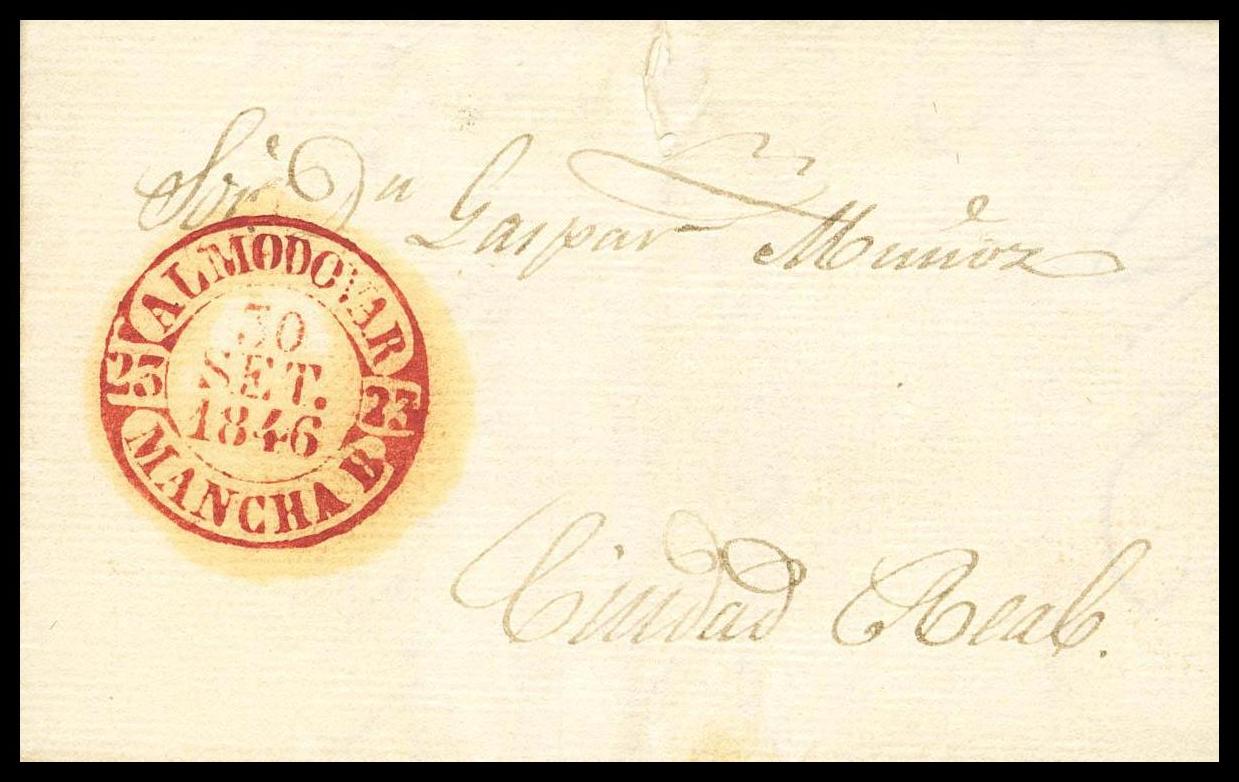 Sor. Dn Gaspar Muñoz
ALMODOVAR
30
SET.
1846
23
MANCHA B
Ciudad Real.